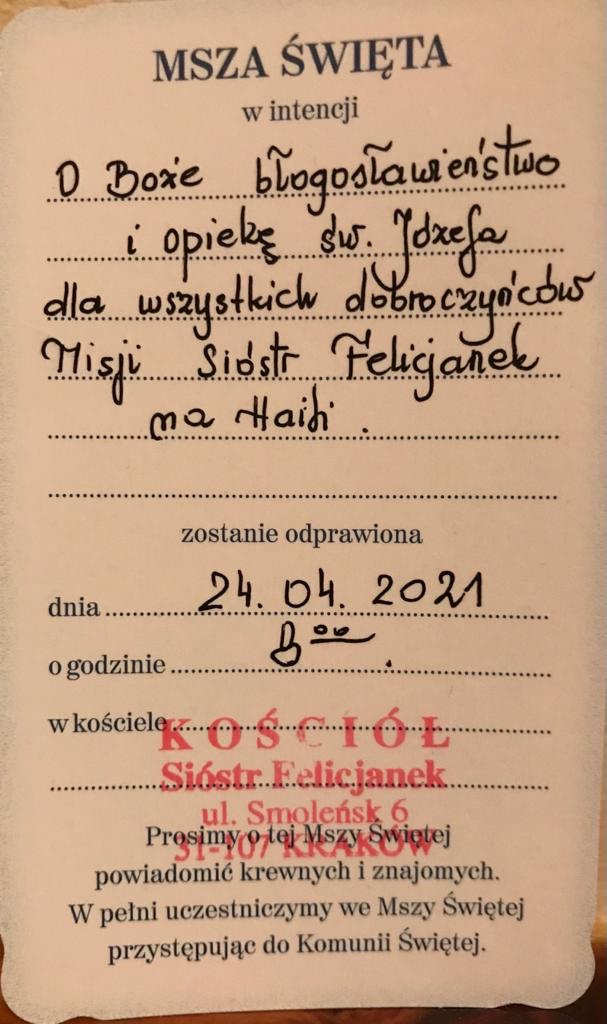 MSZA ŚWIĘTA
w intencji
O Boże błogosławieństwo
i opiekę św. Józefa
dla wszystkich dobroczyńców
Misji Sióstr Felicjanek
na Haiti.
zostanie odprawiona
dnia 24.04.2021
o godzinie 8⁰⁰
w kościele
KOŚCIÓŁ
Sióstr Felicjanek
ul. Smoleńsk 6
31-107 KRAKÓW
Prosimy o tej Mszy Świętej
powiadomić krewnych i znajomych.
W pełni uczestniczymy we Mszy Świętej
przystępując do Komunii Świętej.